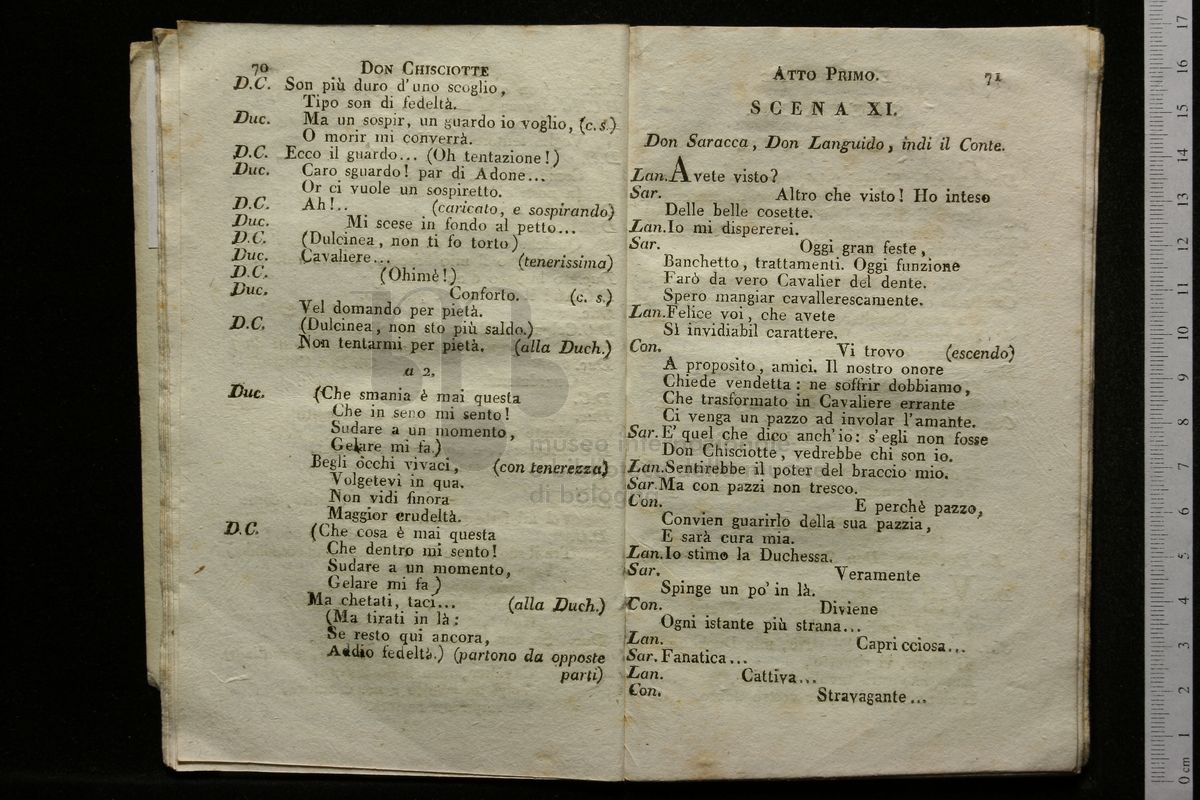 70 DON CHISCIOTTE
D.C. Son più duro d'uno scoglio,
Tipo son di fedeltà.
Duc. Ma un sospir, un guardo io voglio, (c.s.)
O morir mi converrà.
D.C. Ecco il guardo... (Oh tentazione!)
Duc. Caro sguardo! par di Adone...
Or ci vuole un sospiretto.
D.C. Ah!.. (caricato, e sospirando)
Duc. Mi scese in fondo al petto...
D.C. (Dulcinea, non ti fo torto)
Duc. Cavaliere... (tenerissima)
D.C. (Ohimè!)
Duc. Conforto. (c. s.)
Vel domando per pietà.
D.C. (Dulcinea, non sto più saldo.)
Non tentarmi per pietà. (alla Duch.)
a 2,
Duc. (Che smania è mai questa
Che in seno mi sento!
Sudare a un momento,
Gelare mi fa.)
Begli occhi vivaci, (con tenerezza)
Volgetevi in qua.
Non vidi finora
Maggior crudeltà.
D.C. (Che cosa è mai questa
Che dentro mi sento!
Sudare a un momento,
Gelare mi fa)
Ma chetati, taci... (alla Duch.)
(Ma tirati in là:
Se resto qui ancora,
Addio fedeltà.) (partono da opposte
parti)
ATTO PRIMO. 71
SCENA XI.
Don Saracca, Don Languido, indi il Conte.
Lan. Avete visto?
Sar. Altro che visto! Ho inteso
Delle belle cosette.
Lan. Io mi dispererei.
Sar. Oggi gran feste,
Banchetto, trattamenti. Oggi funzione
Farò da vero Cavalier del dente.
Spero mangiar cavallerescamente.
Lan. Felice voi, che avete
Sì invidiabil carattere.
Con. Vi trovo (escendo)
A proposito, amici. Il nostro onore
Chiede vendetta: ne soffrir dobbiamo,
Che trasformato in Cavaliere errante
Ci venga un pazzo ad involar l'amante.
Sar. E' quel che dico anch'io: s'egli non fosse
Don Chisciotte, vedrebbe chi son io.
Lan. Sentirebbe il poter del braccio mio.
Sar. Ma con pazzi non tresco.
Con. E perchè pazzo,
Convien guarirlo della sua pazzia,
E sarà cura mia.
Lan. Io stimo la Duchessa.
Sar. Veramente
Spinge un po' in là.
Con. Diviene
Ogni istante più strana...
Lan. Capricciosa...
Sar. Fanatica...
Lan. Cattiva...
Con. Stravagante...